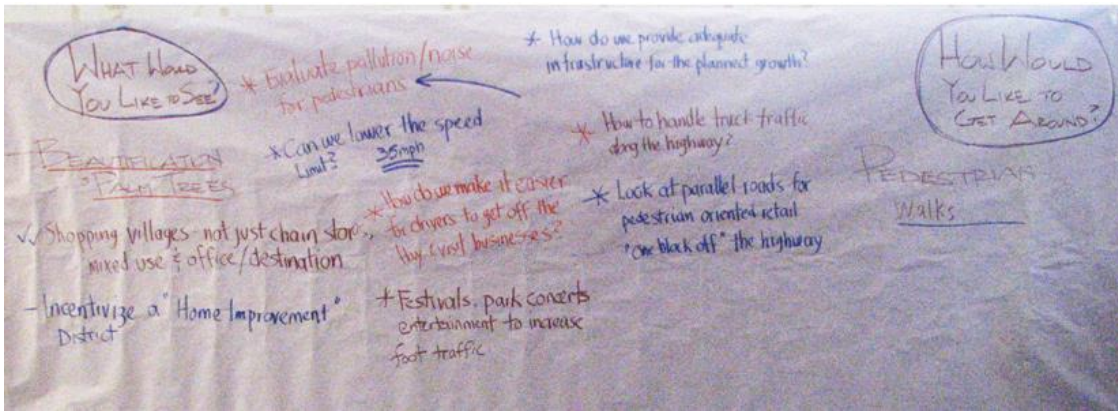 WHAT WOULD
YOU LIKE TO SEE?
- BEAUTIFICATION
"PALM TREES
✓✓ Shopping villages - not just chain stores,
mixed use & office/destination
- Incentivize a "Home Improvement"
District
* Evaluate pollution/noise
for pedestrians
* Can we lower the speed
limit? 35mph
* How do we make it easier
for drivers to get off the
Hwy & visit businesses?
* Festivals, park concerts
entertainment to increase
foot traffic
* How do we provide adequate
infrastructure for the planned growth?
* How to handle truck traffic
along the highway?
* Look at parallel roads for
pedestrian oriented retail
"one block off" the highway
HOW WOULD
YOU LIKE TO
GET AROUND?
PEDESTRIAN
Walks